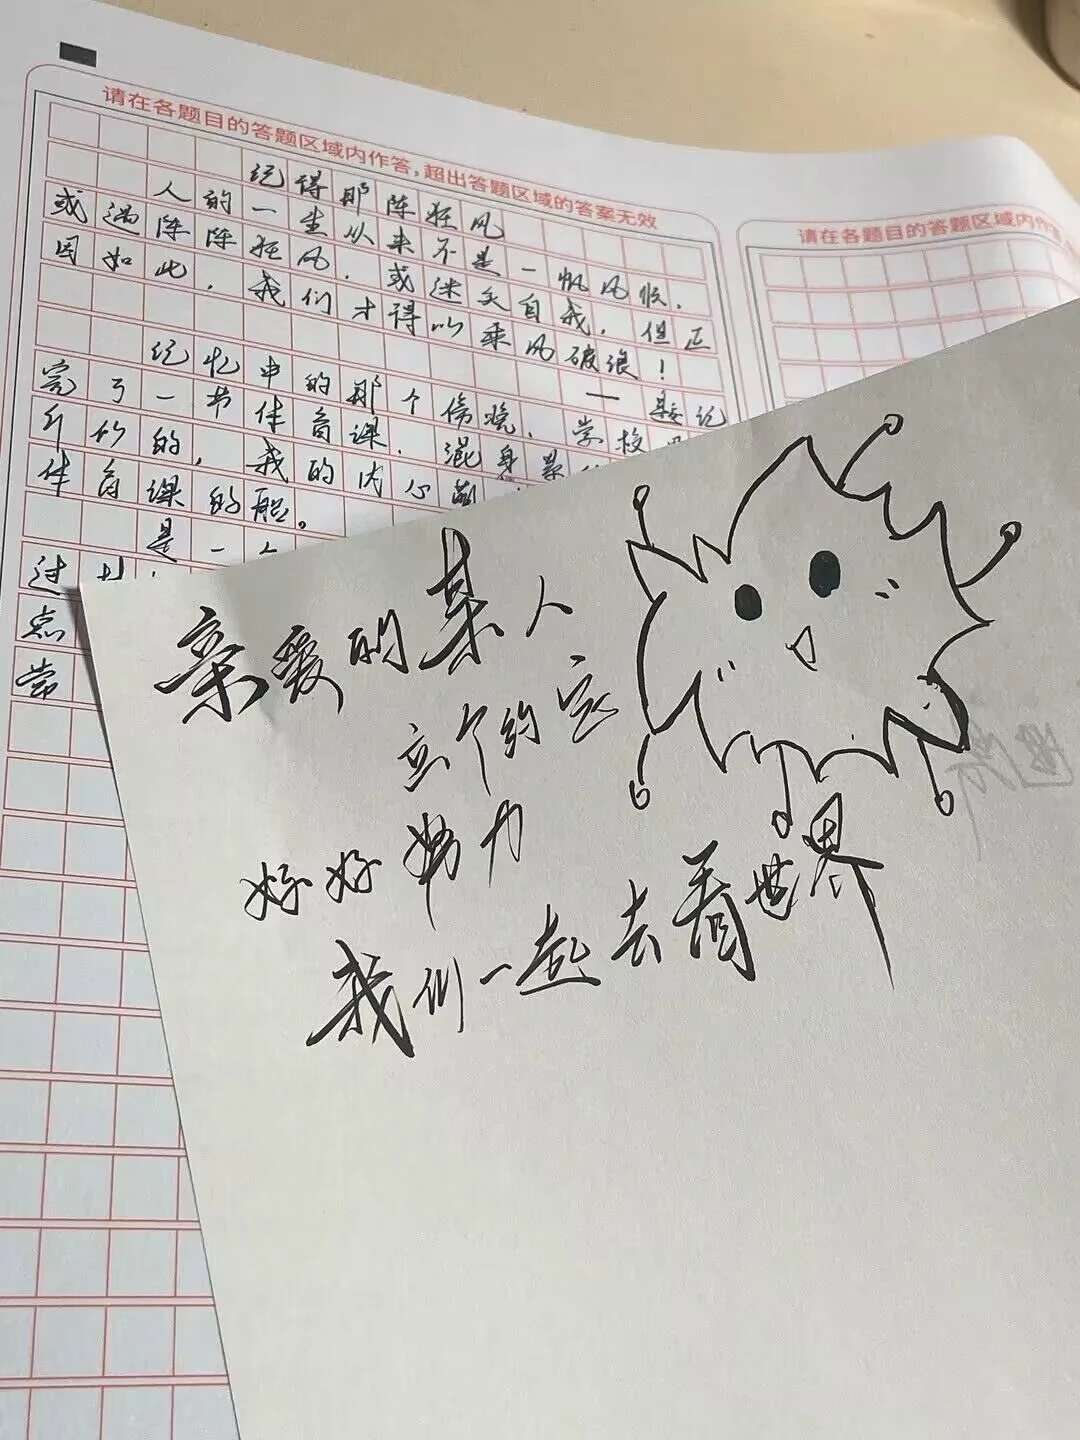 请在各题目的答题区域内作答,超出答题区域的答案无效
记得那阵狂风
人的一生从来不是一帆风顺,
或遇阵阵狂风,或迷失自我,但正
因如此,我们才得以乘风破浪!
记忆中的那个傍晚,学校
完了一节体育课,混身是
的,我的内心
体育课的
是一个
过
点
常
请在各题目的答题区域内作
亲爱的某人
立个约定
好好努力
我们一起去看世界